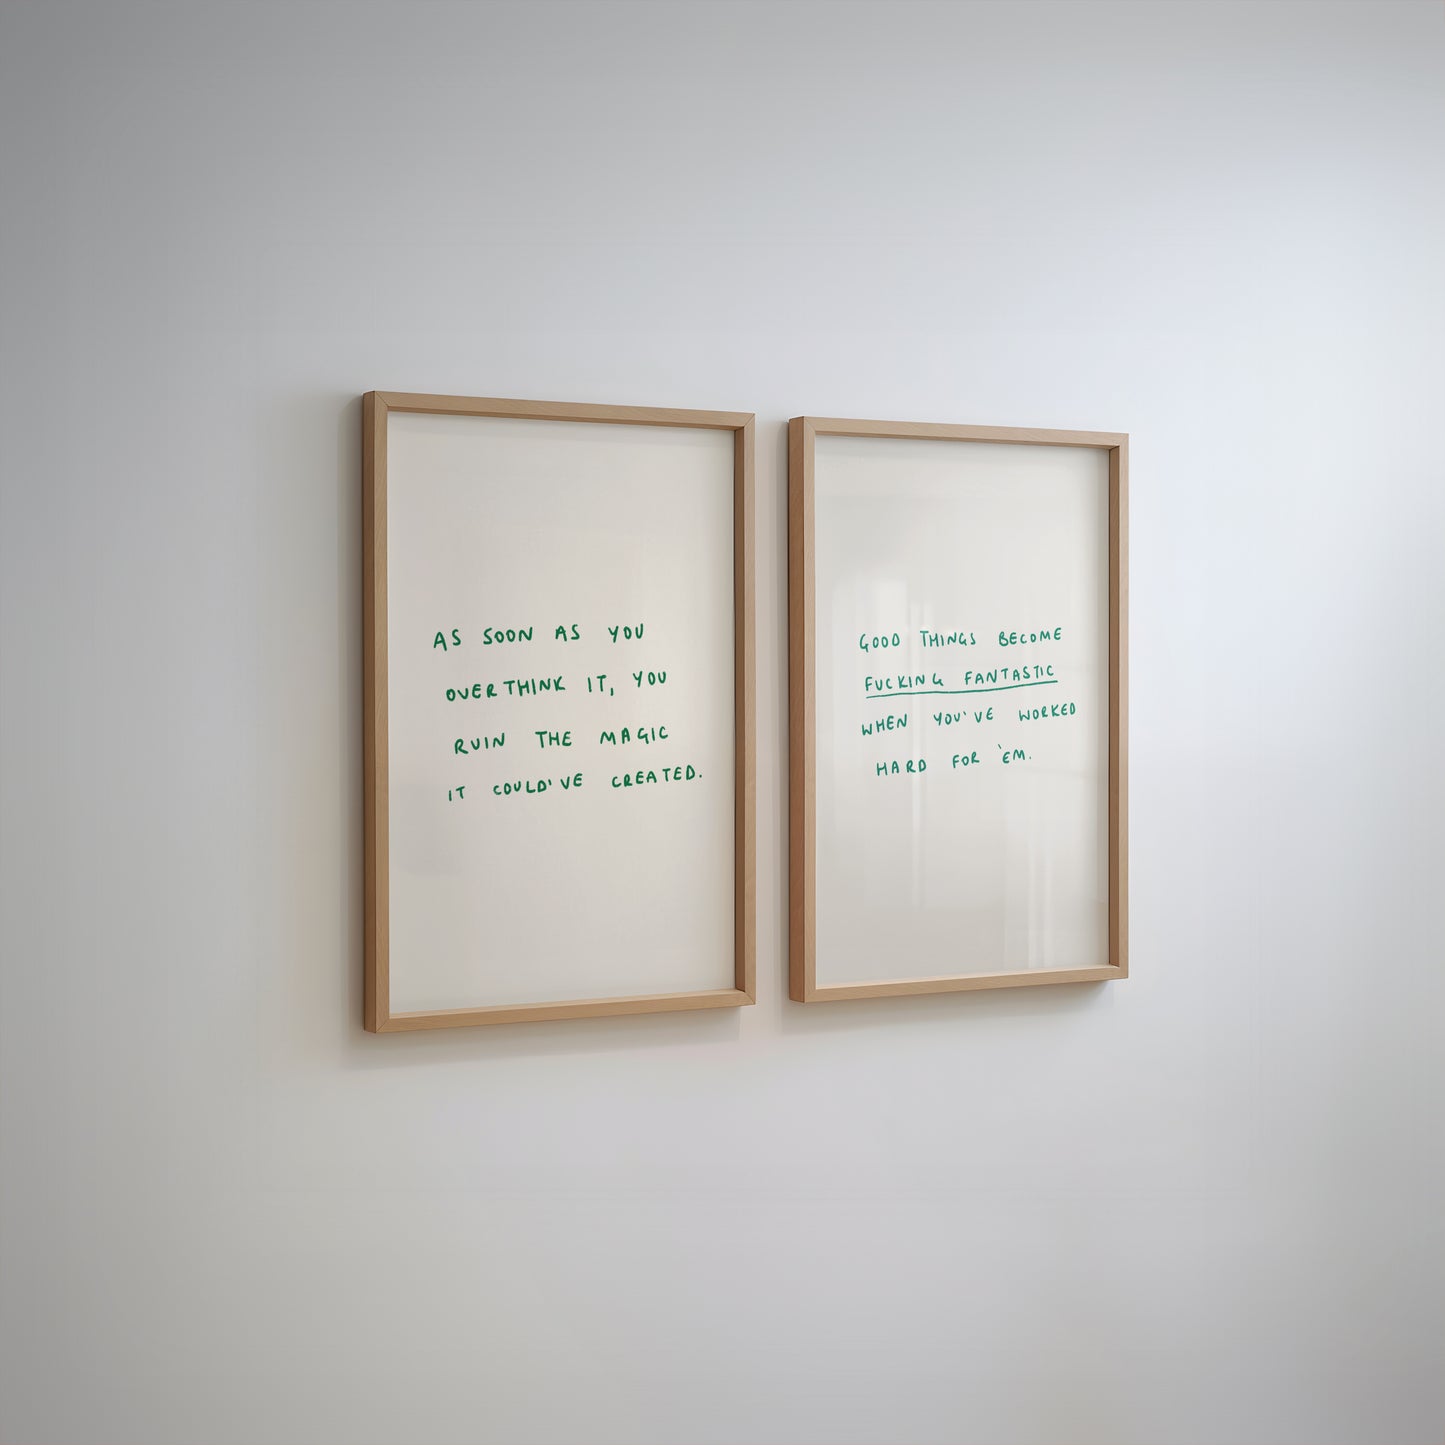 AS SOON AS YOU
OVERTHINK IT, YOU
RUIN THE MAGIC
IT COULD'VE CREATED.
GOOD THINGS BECOME
FUCKING FANTASTIC
WHEN YOU'VE WORKED
HARD FOR 'EM.